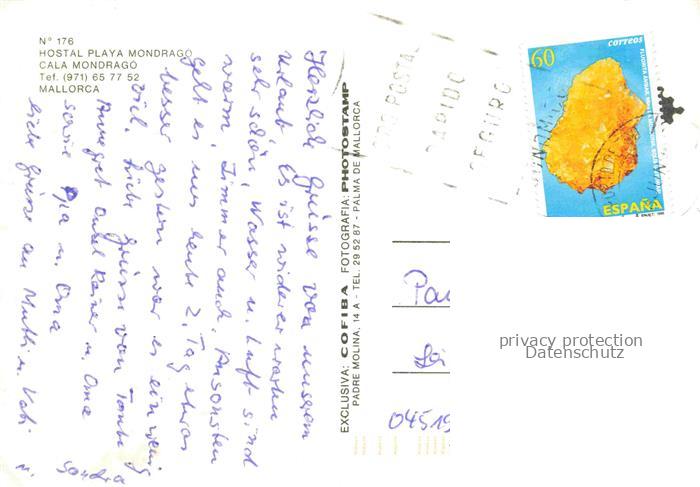 Nº 176
HOSTAL PLAYA MONDRAGÓ
CALA MONDRAGÓ
Tef. (971) 65 77 52
MALLORCA
Herzlich Grüsse von unserem
Urlaub. Es ist wieder
sehr schön, Wasser u. Luft sind
warm, Zimmer auch. Ansonsten
geht es uns heute 2. Tag etwas
besser gestern war es ein wenig
viel. Liebe Grüsse von Tante
Annegret Onkel Rainer u. Oma
sowie Opa u. Oma
liebe Grüsse an Mutti u. Vati
u. Sandra
EXCLUSIVA: COFIBA FOTOGRAFIA: PHOTOSTAMP
PADRE MOLINA, 14 A - TEL. 29 52 87 - PALMA DE MALLORCA
POSTAL
RAPIDO
SEGURO
60
correos
ESPAÑA
04519
privacy protection
Datenschutz